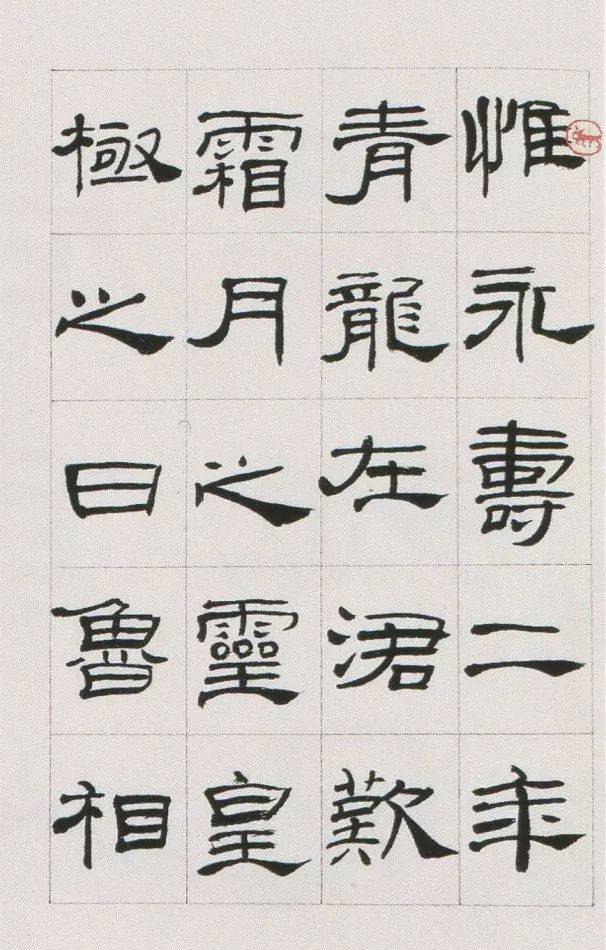 惟永壽二年
青龍在涒歎
霜月之靈皇
極之日魯相